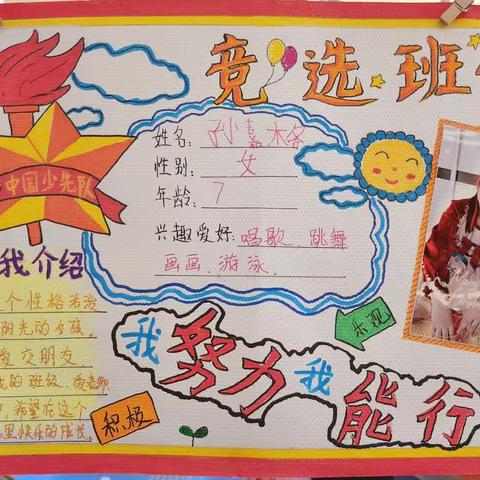 竞选班
中国少先队
姓名：孙嘉木各
性别：女
年龄：7
兴趣爱好：唱歌、跳舞
画画、游泳、
我介绍
个性格活发
阳光的女孩，
爱交朋友
的班级，
希望在这个
里快乐的成长
积极
乐观
我努力我
能行